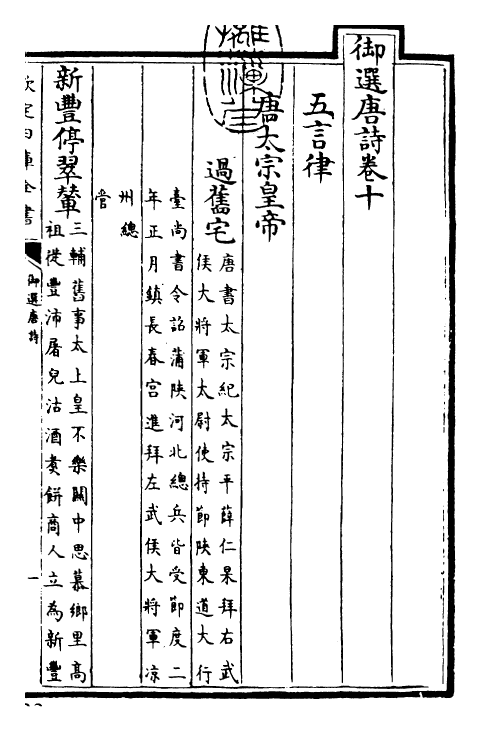 御選唐詩卷十
五言律
唐太宗皇帝
過舊宅
唐書太宗紀太宗平薛仁杲拜右武
侯大將軍太尉使持節陝東道大行
臺尚書令詔蒲陝河北總兵皆受節度二
年正月鎮長春宮進拜左武侯大將軍凉
州總
管
新豐停翠輦
三輔舊事太上皇不樂關中思慕鄉里高
祖徙豐沛屠兒沽酒煑餅商人立為新豐
欽定四庫全書
御選唐詩
一